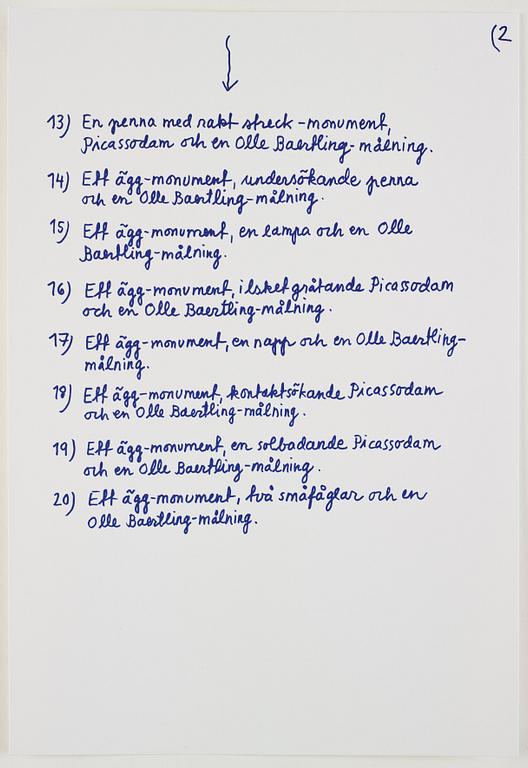 (2
13) En penna med rakt streck-monument,
Picassodam och en Olle Baertling-målning.
14) Ett ägg-monument, undersökande penna
och en Olle Baertling-målning.
15) Ett ägg-monument, en lampa och en Olle
Baertling-målning.
16) Ett ägg-monument, ilsket gråtande Picassodam
och en Olle Baertling-målning.
17) Ett ägg-monument, en napp och en Olle Baertling-
målning.
18) Ett ägg-monument, kontaktsökande Picassodam
och en Olle Baertling-målning.
19) Ett ägg-monument, en solbadande Picassodam
och en Olle Baertling-målning.
20) Ett ägg-monument, två småfåglar och en
Olle Baertling-målning.